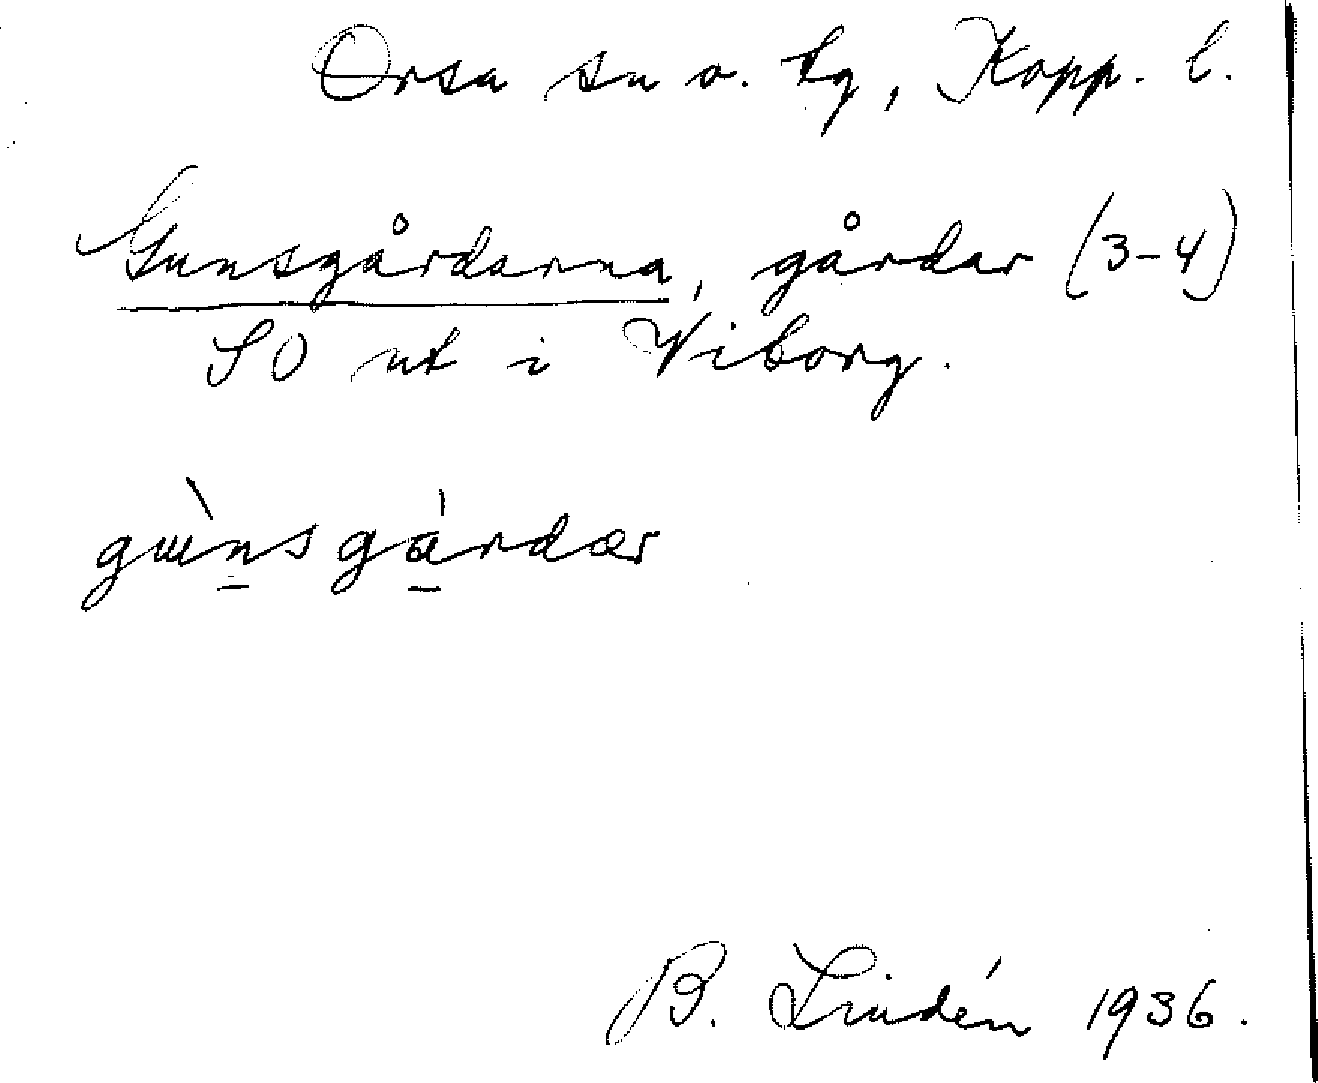 Orsa sn o. tg, Kopp. l.
Gunsgårdarna, gårdar (3-4)
SO ut i Viborg.
gɯ̀n̠sgá̠rdær
B. Lindén 1936.